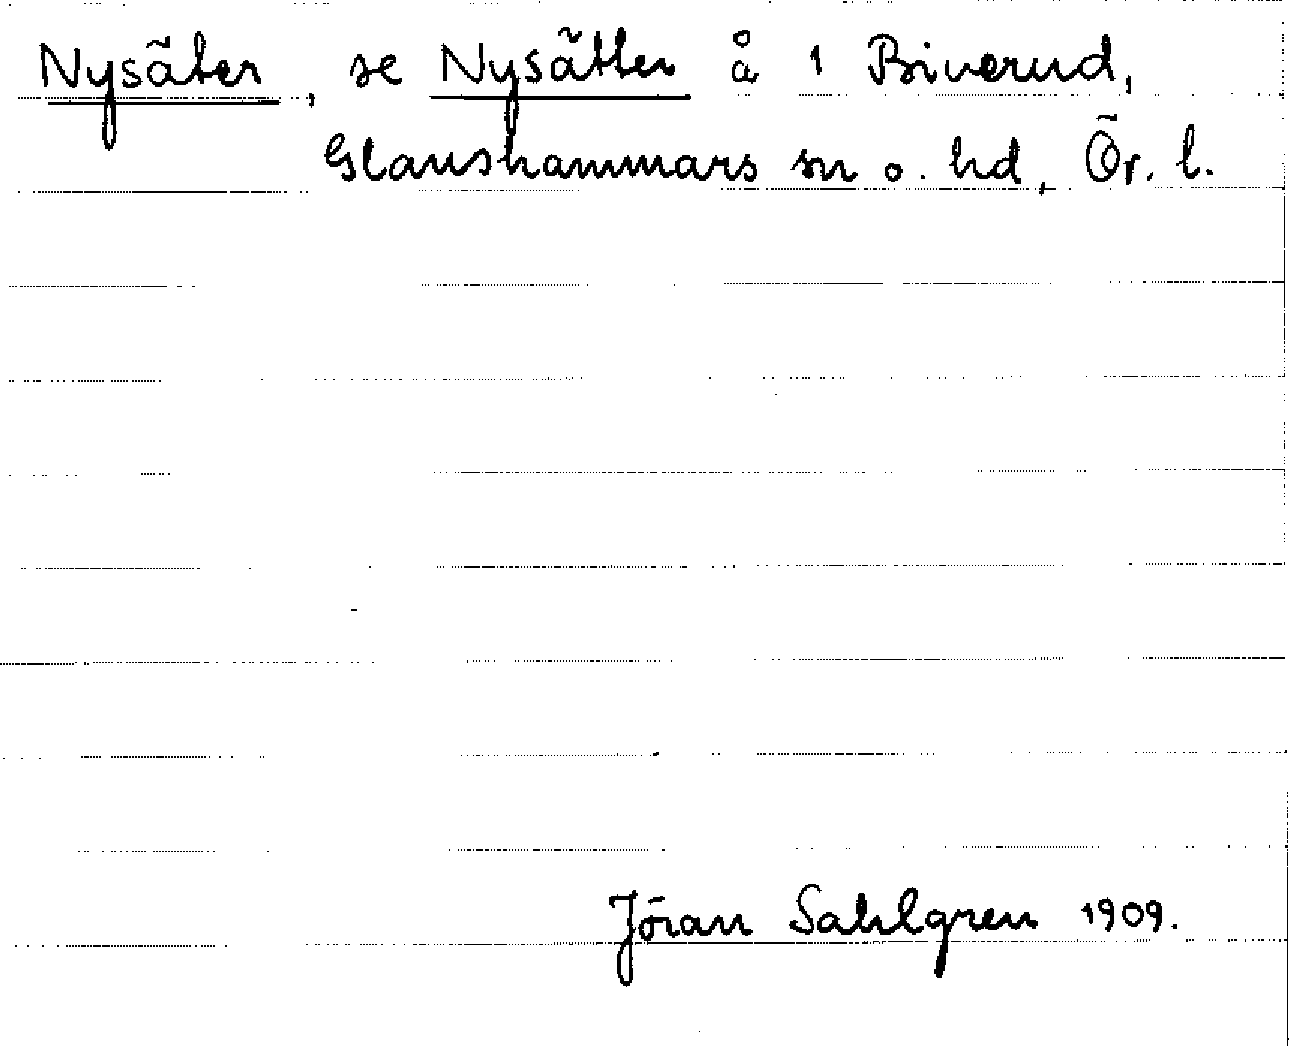 Nysäter, se Nysätter å 1 Biverud,
Glanshammars sn o. hd, Ör. l.
Jöran Sahlgren 1909.